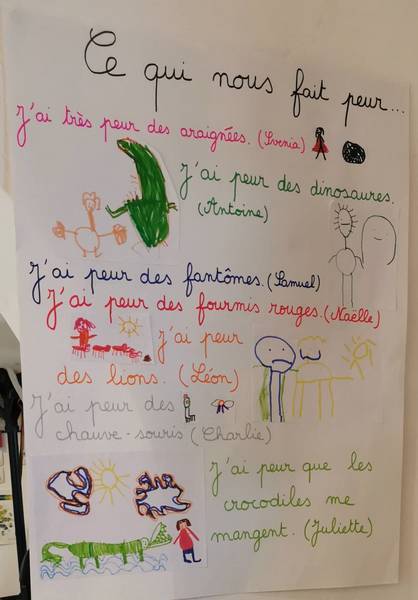 Ce qui nous fait peur...
J'ai très peur des araignées. (Ivenia)
J'ai peur des dinosaures.
(Antoine)
J'ai peur des fantômes. (Samuel)
J'ai peur des fourmis rouges. (Naëlle)
J'ai peur
des lions. (Léon)
J'ai peur des
chauve-souris (Charlie)
J'ai peur que les
crocodiles me
mangent. (Juliette)